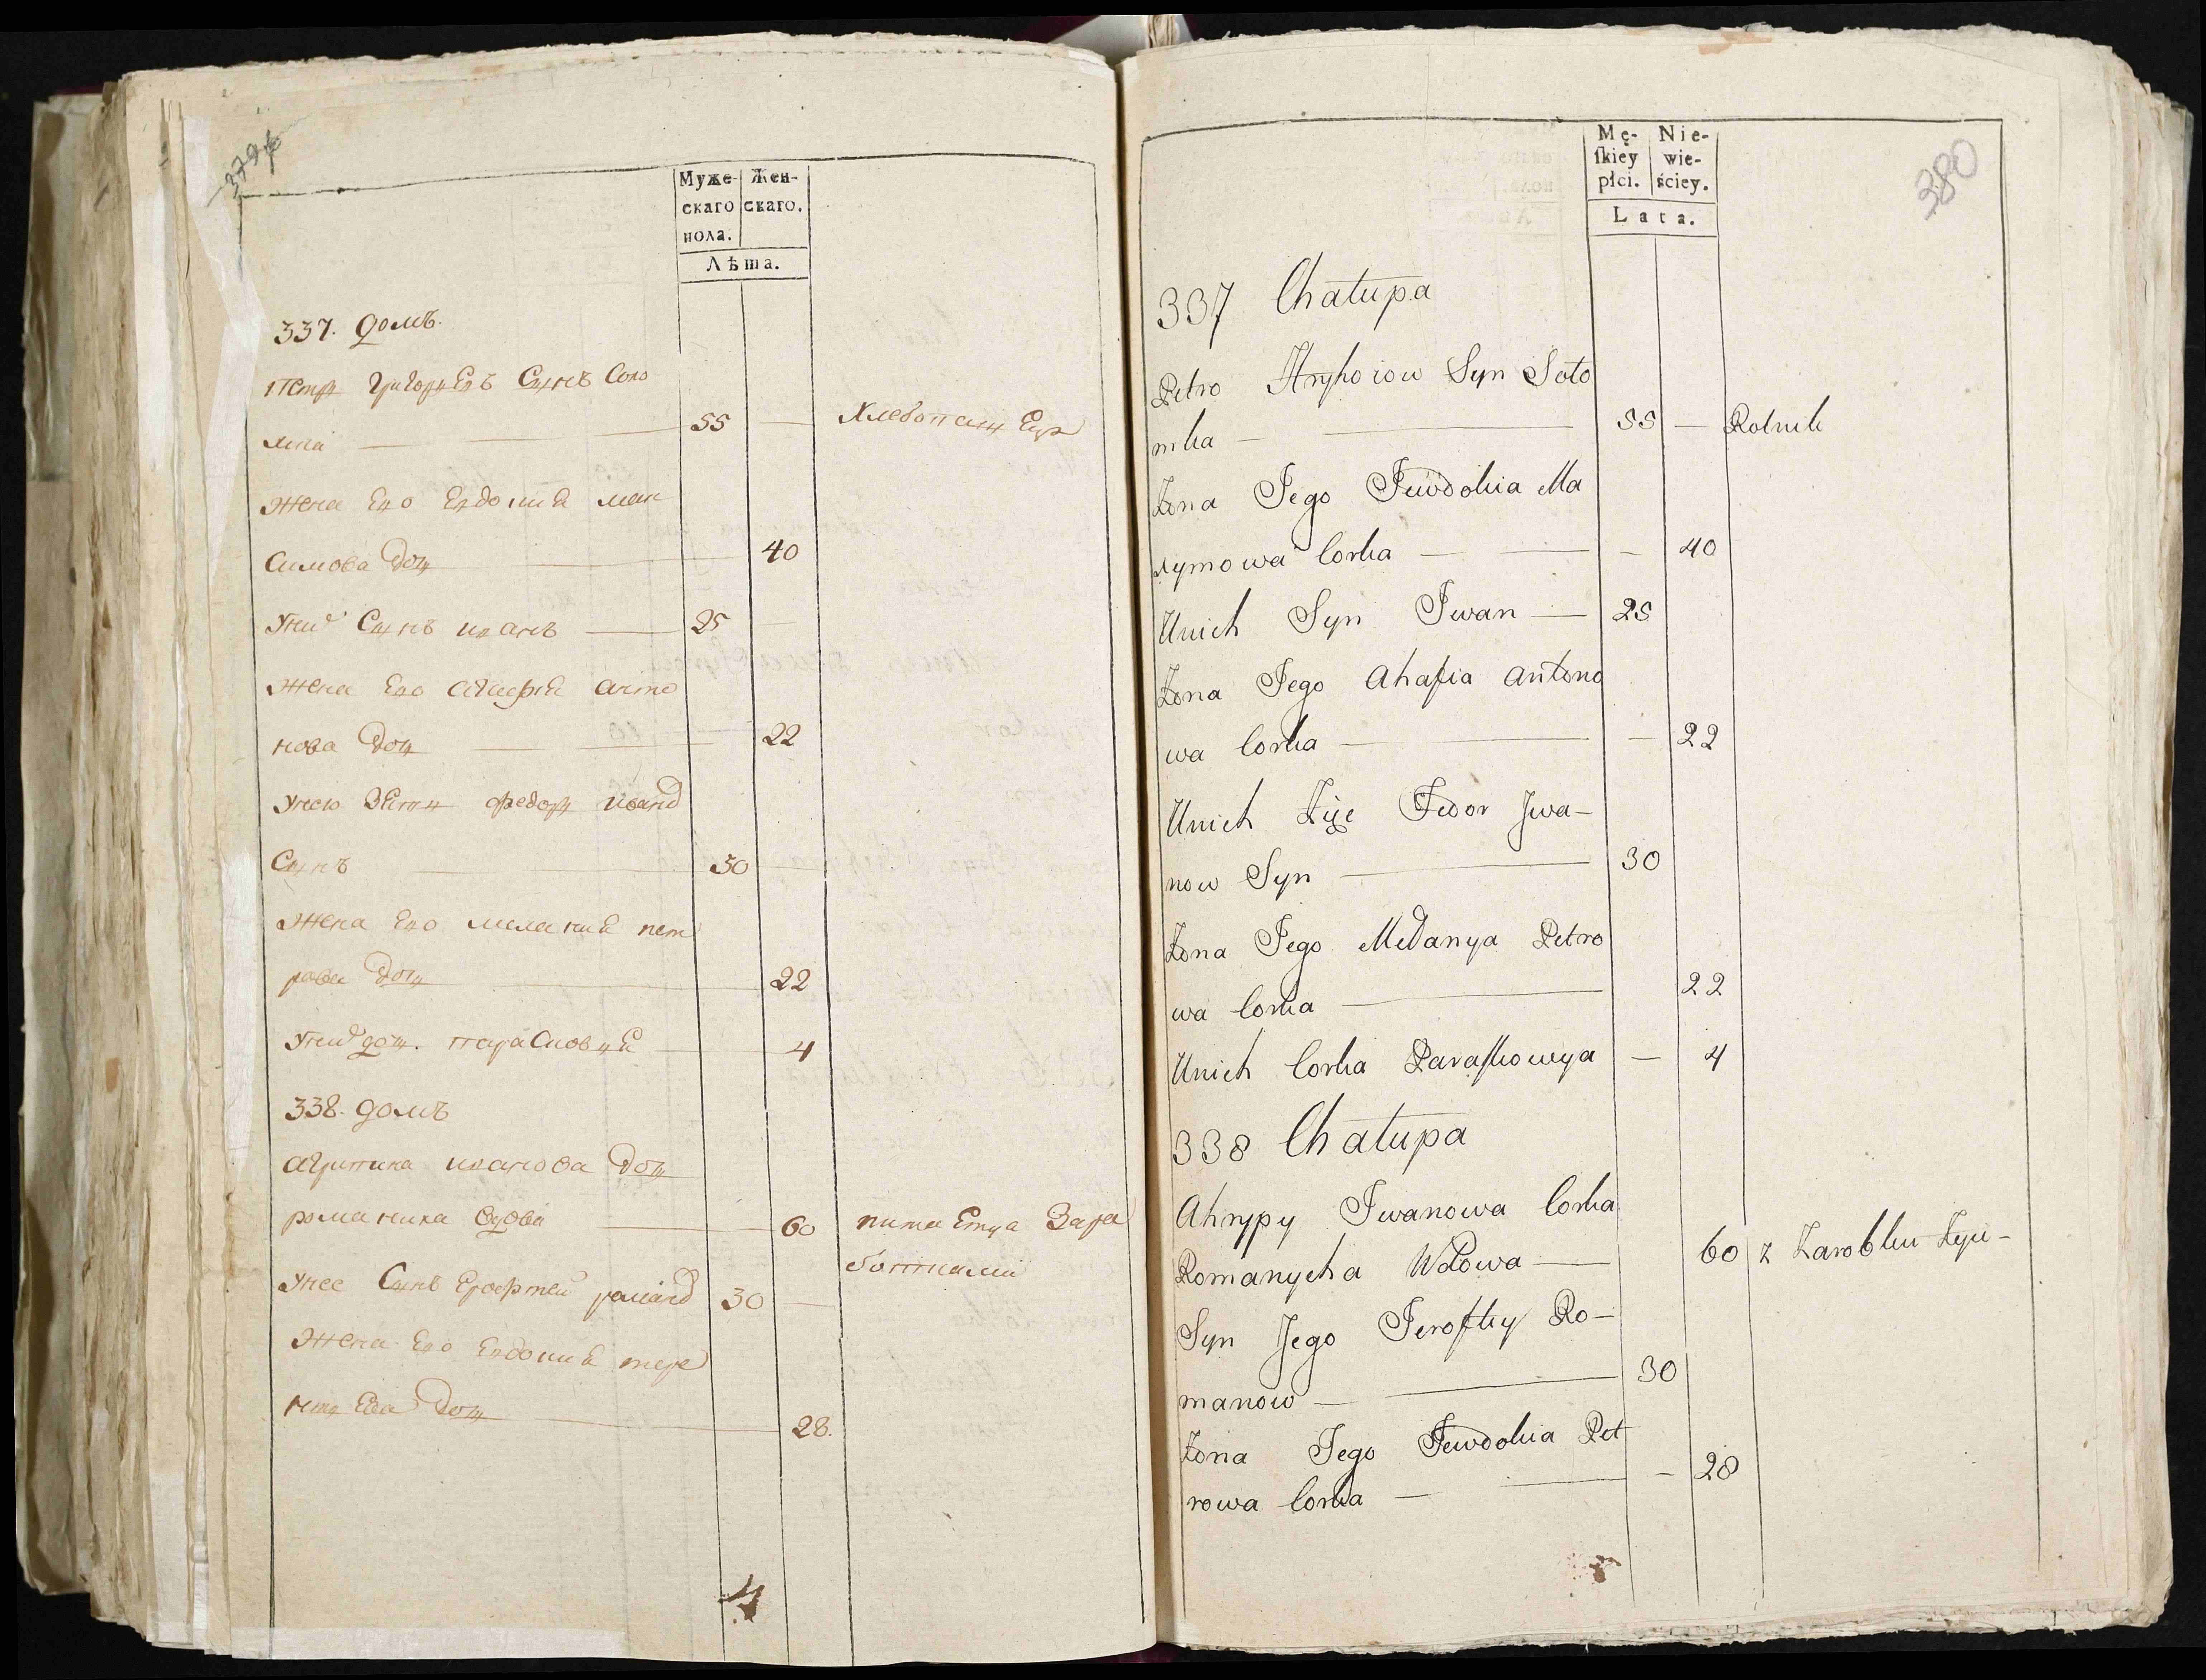 379
Муже- Жен-
скаго скаго.
пола.
Лѣта.
337. домъ.
Петръ Григорьевъ Сынъ Соло
мка 55 — Хлебопашец
Жена Его Евдокия мак
симова Доч 40
Уних Сынъ иванъ 25
Жена Его Агафия анто
нова Доч 22
Унею Зяти федоръ иванов
Сынъ 30 —
Жена Его мелания пет
рова Доч 22
Уних доч. парасковия 4
338. домъ
Агрипина иванова Доч
романиха вдова 60 питаетца Зара
ботками
Унее Сынъ Ерофтей романов 30 —
Жена Его Евдокия тере
нтиева Доч 28.
4
380
Mę- Nie-
ſkiey wie-
płci. ściey.
Lata.
337 Chałupa
Petro Hryhoiow Syn Soło
mka — 55 — Rolnik
Żona Jego Jewdokia Ma
xymowa Corka — — 40
Unich Syn Jwan — 25
Żona Jego Ahafia Antono
wa Corka — — 22
Unich Zięc Fedor Jwa-
now Syn — 30
Żona Jego Mełanya Petro
wa Corka — 22
Unich Corka Paraſkowya — 4
338 Chałupa
Ahrypy Jwanowa Corka
Romanycha Wdowa — 60 z Zarobku Żyie-
Syn Jego Jeroftey Ro-
manow — 30
Żona Jego Jewdokia Pet
rowa Corka — — 28